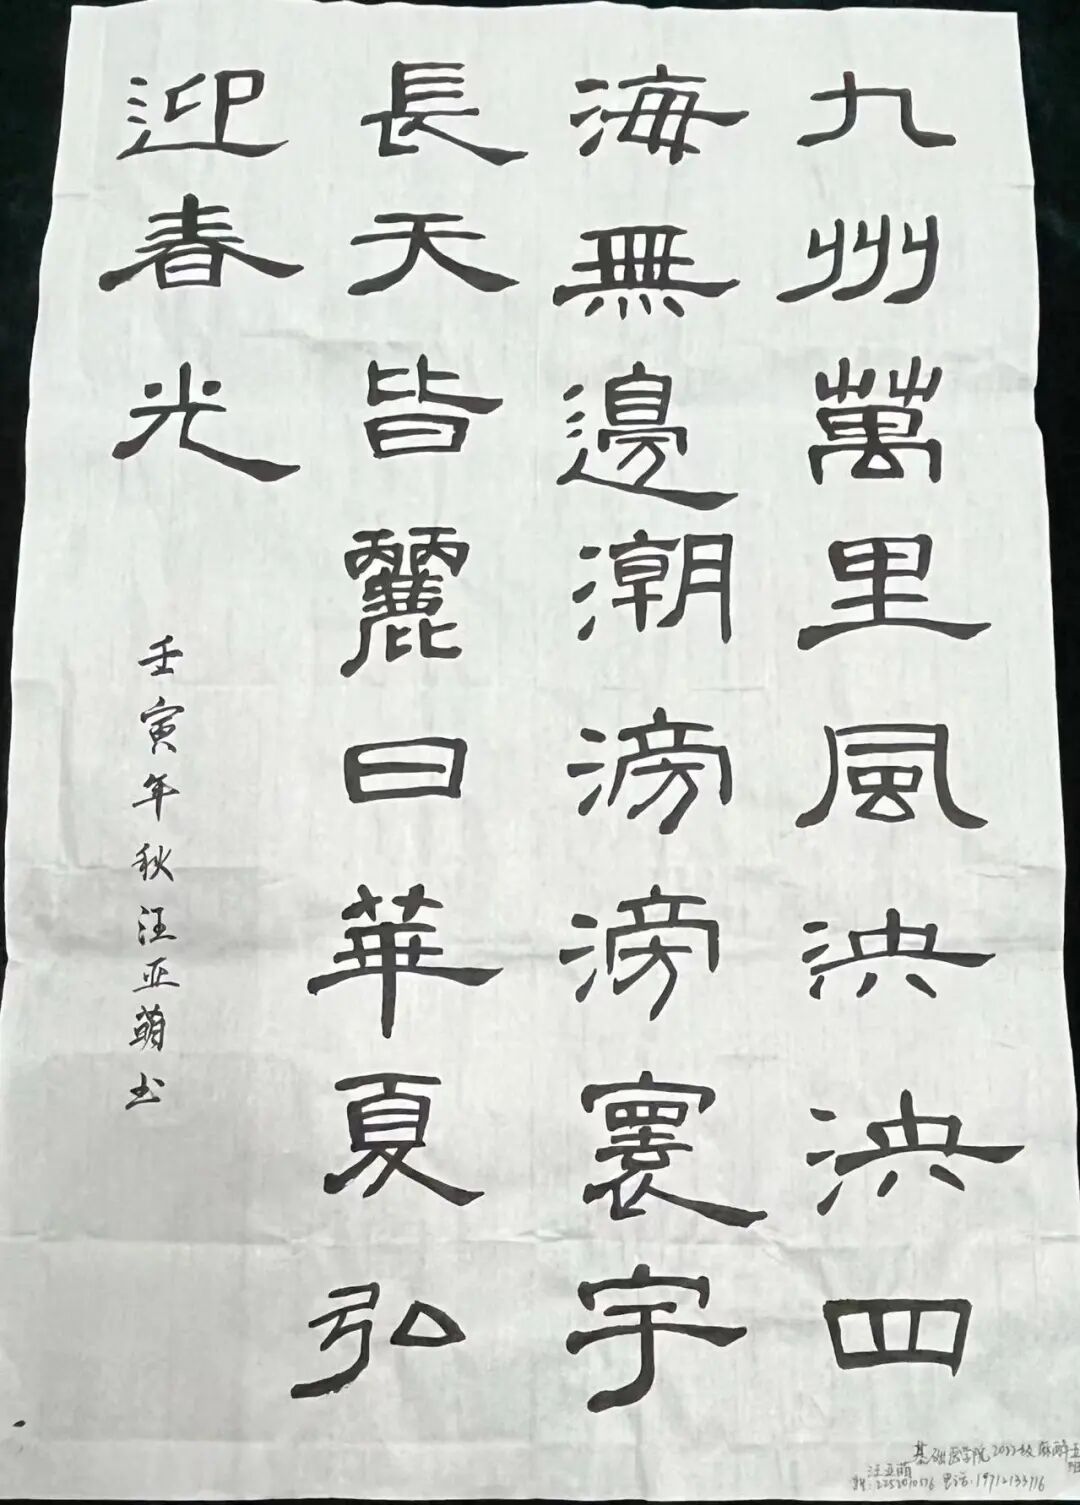 九州萬里風泱泱四
海無邊潮滂滂寰宇
長天皆麗日華夏弘
迎春光
壬寅年秋汪亚萌书
基础医学院2022级麻醉五班
汪亚萌
电话:19712133716